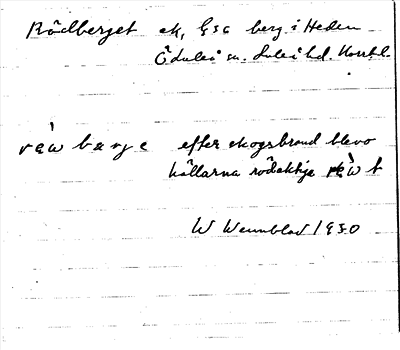 Rödberget ek, Gsc berg i Heden
Ö Luleå sn. Luleå hd. Norrb l.
efter skogsbrand blevo
hällarna rödaktiga
W Wennblad 1930